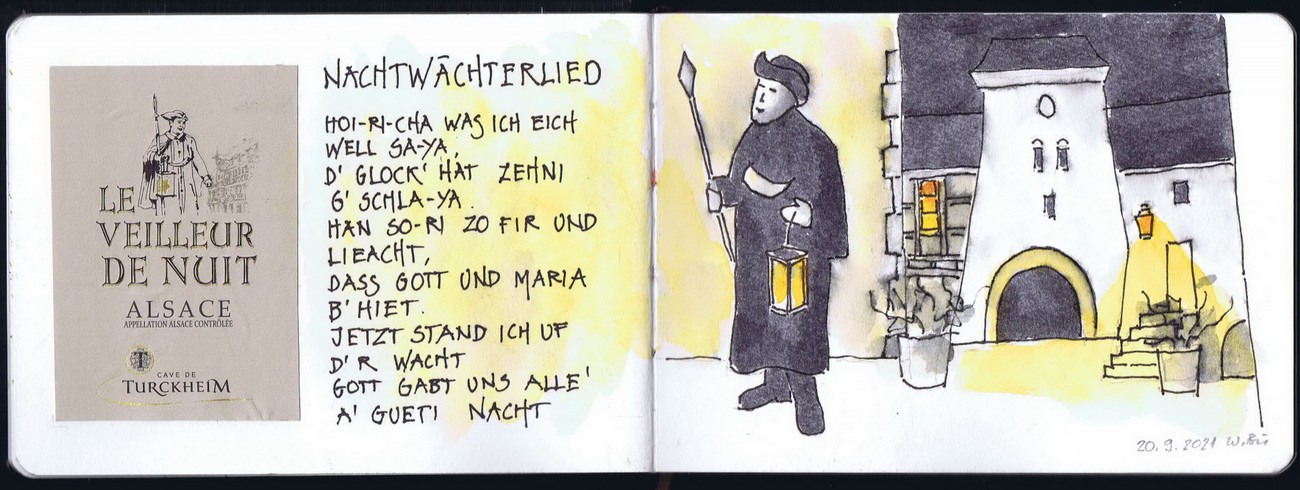 LE
VEILLEUR
DE NUIT
ALSACE
APPELLATION ALSACE CONTRÔLÉE
T
CAVE DE
TURCKHEIM
NACHTWÄCHTERLIED
HOI-RI-CHA WAS ICH EICH
WELL SA-YA,
D' GLOCK' HÀT ZEHNI
G' SCHLA-YA.
HÀN SO-RI ZO FIR UND
LIEACHT,
DASS GOTT UND MARIA
B' HIET.
JETZT STAND ICH UF
D' R WACHT
GOTT GABT UNS ALLE'
A' GUETI NACHT
20.9.2021